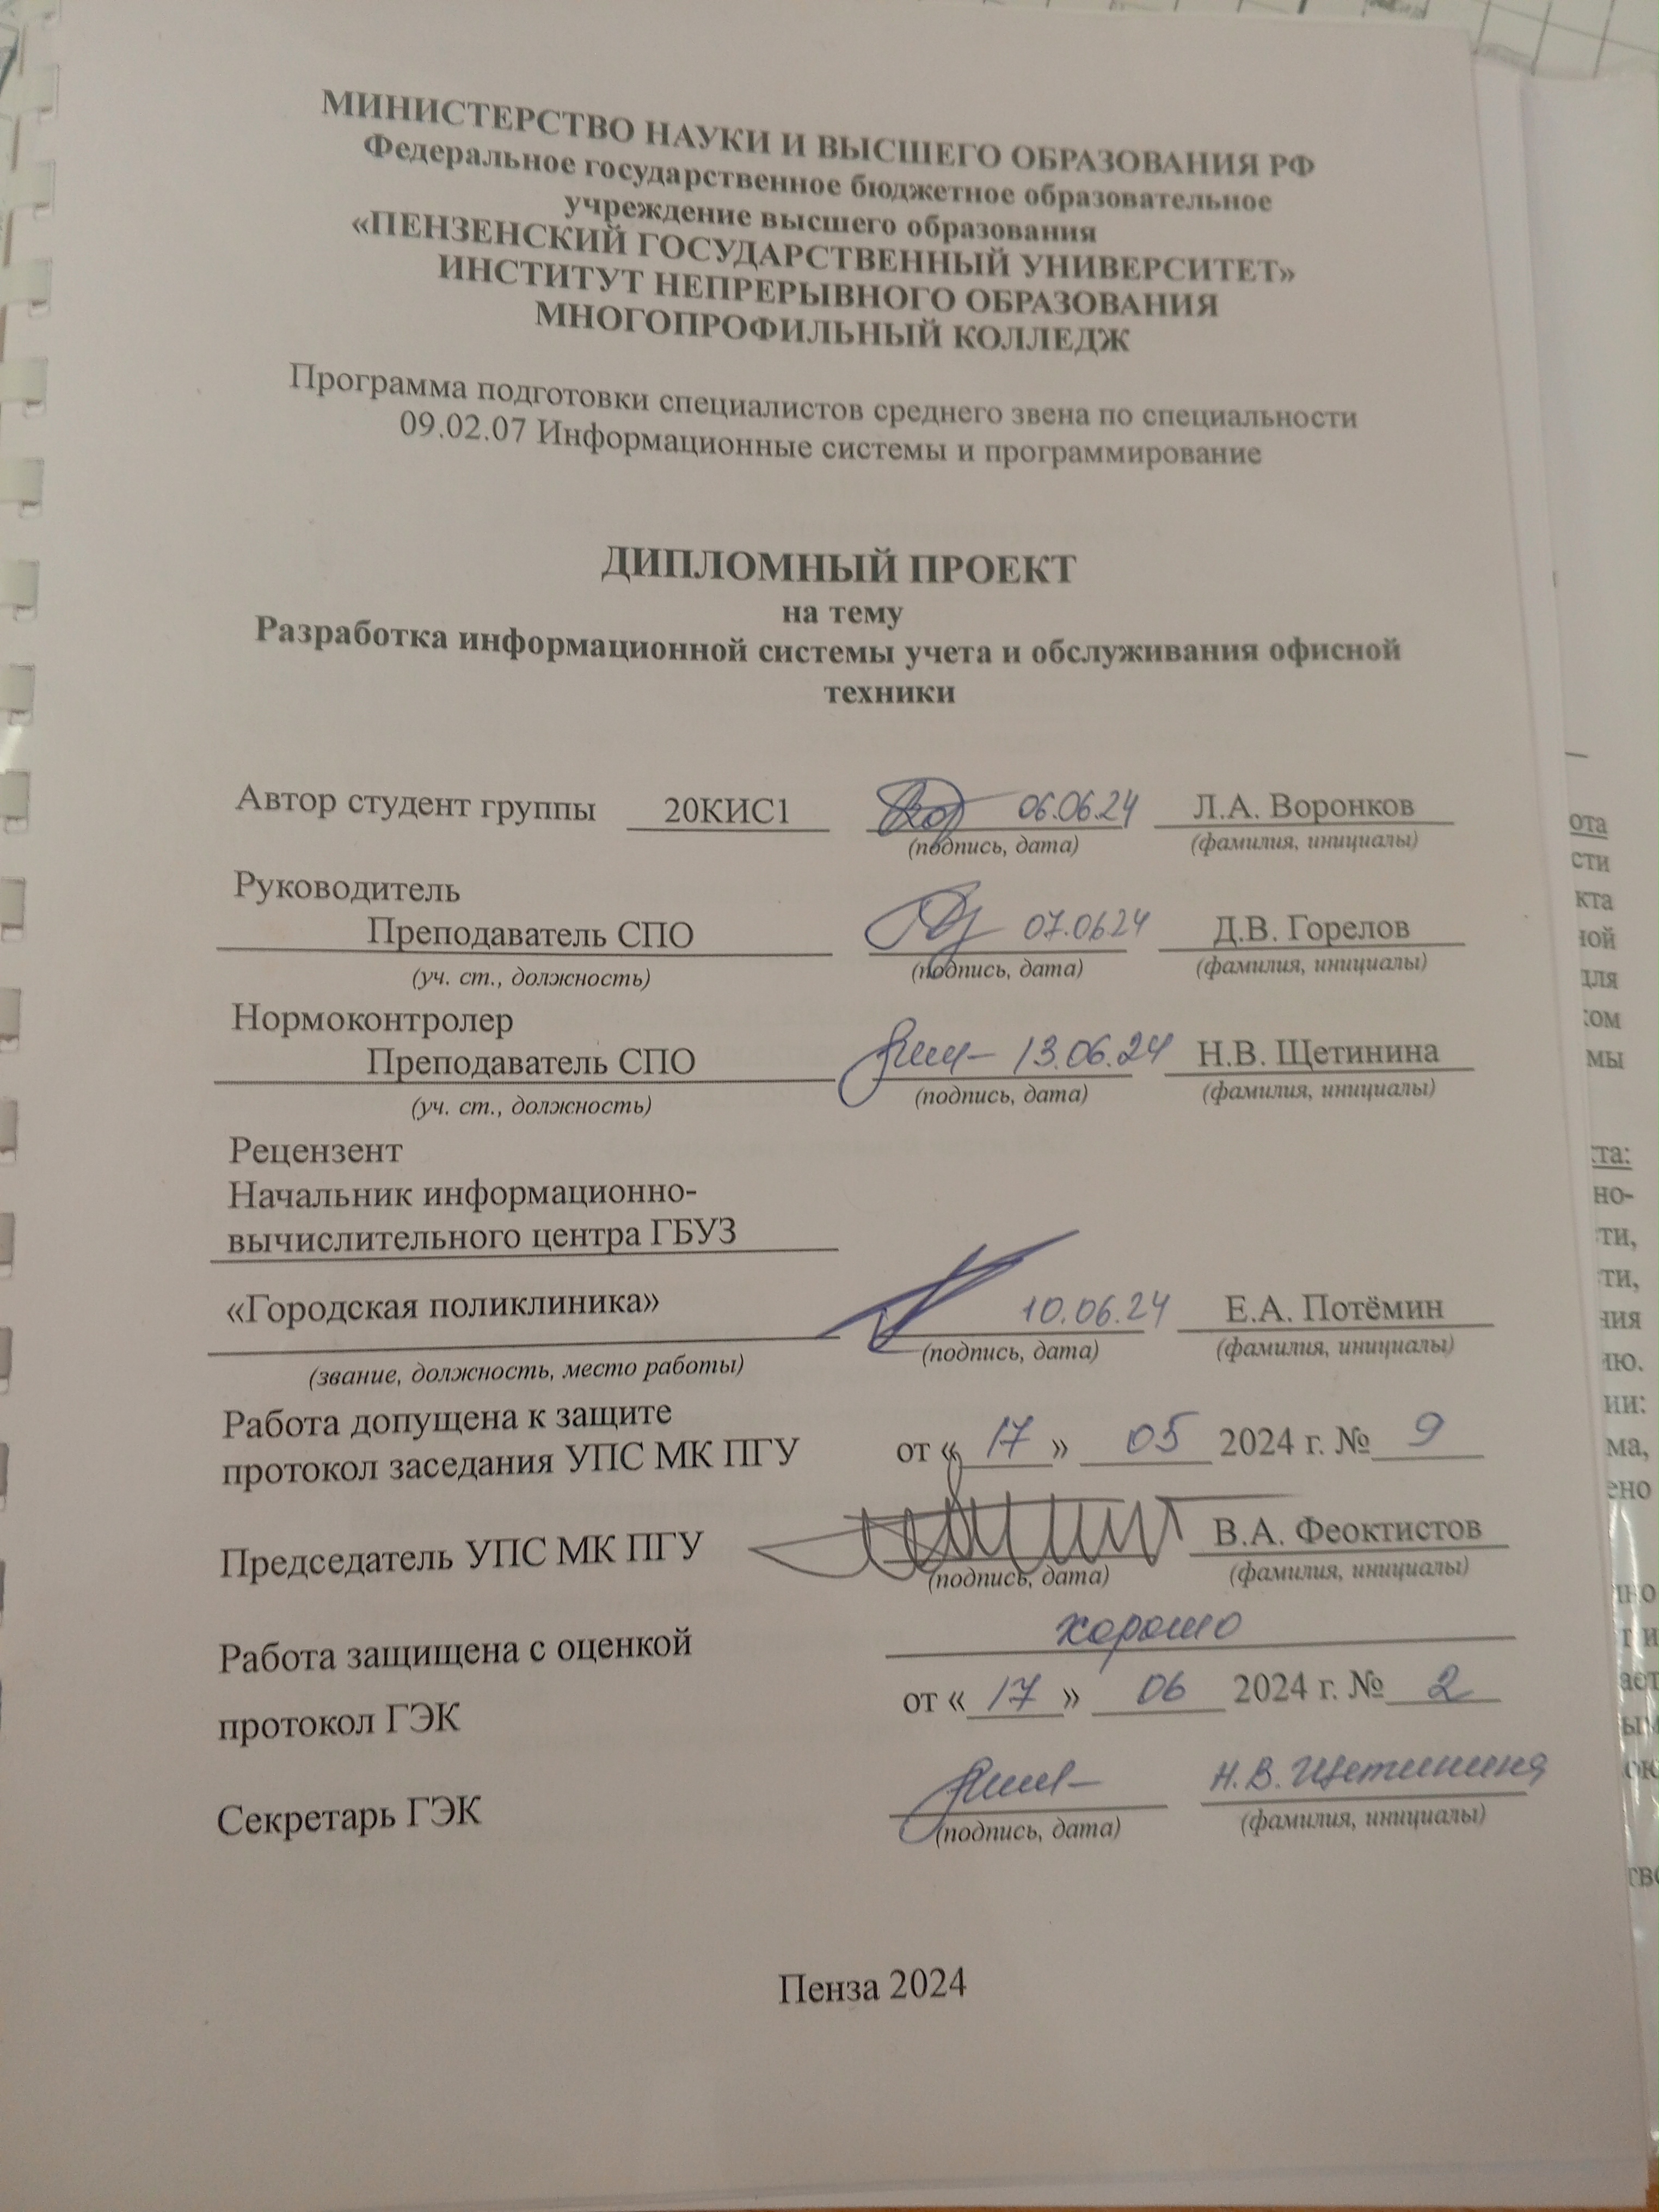 МИНИСТЕРСТВО НАУКИ И ВЫСШЕГО ОБРАЗОВАНИЯ РФ
Федеральное государственное бюджетное образовательное
учреждение высшего образования
«ПЕНЗЕНСКИЙ ГОСУДАРСТВЕННЫЙ УНИВЕРСИТЕТ»
ИНСТИТУТ НЕПРЕРЫВНОГО ОБРАЗОВАНИЯ
МНОГОПРОФИЛЬНЫЙ КОЛЛЕДЖ
Программа подготовки специалистов среднего звена по специальности
09.02.07 Информационные системы и программирование
ДИПЛОМНЫЙ ПРОЕКТ
на тему
Разработка информационной системы учета и обслуживания офисной
техники
Автор студент группы 20КИС1 06.06.24 Л.А. Воронков
(подпись, дата) (фамилия, инициалы)
Руководитель
Преподаватель СПО 07.06.24 Д.В. Горелов
(уч. ст., должность) (подпись, дата) (фамилия, инициалы)
Нормоконтролер
Преподаватель СПО 13.06.24 Н.В. Щетинина
(уч. ст., должность) (подпись, дата) (фамилия, инициалы)
Рецензент
Начальник информационно-
вычислительного центра ГБУЗ
«Городская поликлиника» 10.06.24 Е.А. Потёмин
(звание, должность, место работы) (подпись, дата) (фамилия, инициалы)
Работа допущена к защите
протокол заседания УПС МК ПГУ от « 17 » 05 2024 г. № 9
Председатель УПС МК ПГУ В.А. Феоктистов
(подпись, дата) (фамилия, инициалы)
Работа защищена с оценкой хорошо
протокол ГЭК от « 17 » 06 2024 г. № 2
Секретарь ГЭК Н.В. Щетинина
(подпись, дата) (фамилия, инициалы)
Пенза 2024